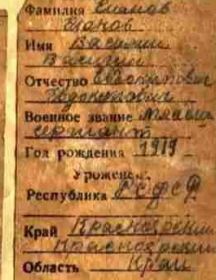 Фамилия Юшков
Юшков
Имя Василий
Василий
Отчество
Прокопович
Военное звание младш
сержант
Год рождения 1919
Уроженец
Республика РСФСР
Край Красноярский
Красноярский
Область Край